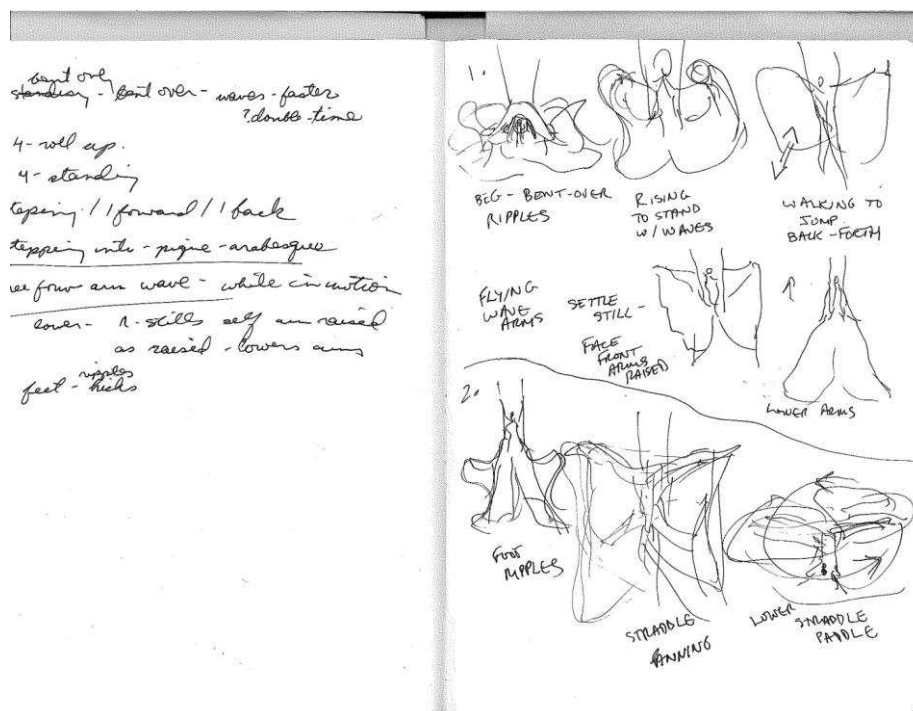 bent over
standing - bent over - waves - faster
? double-time
4 - roll up.
4 - standing
teping / 1 forward / 1 back
tepping into - pique - arabesque
four arm wave - while in motion
lower - R. stills self arm raised
as raised - lowers arms
ripples
feet - kicks
1.
BEG - BENT-OVER
RIPPLES
RISING
TO STAND
W/ WAVES
WALKING TO
JUMP
BACK - FORTH
FLYING
WAVE
ARMS
SETTLE
STILL -
FACE
FRONT
ARMS
RAISED
LOWER ARMS
2.
FOOT
RIPPLES
STRADDLE
FANNING
LOWER
STRADDLE
PADDLE